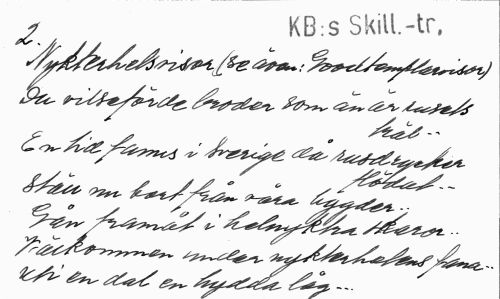 KB:s Skill.-tr.
2.
Nykterhetsvisor (se även: Goodtemplarvisor)
Du vilseförde broder som än är rusets
träl..
En tid fanns i Sverige då rusdrycker
flödat..
Stäm nu bort från våra bygder..
Gån framåt i helnyktra skaror..
Välkommen under nykterhetens fana..
uti en dal en hydda låg...